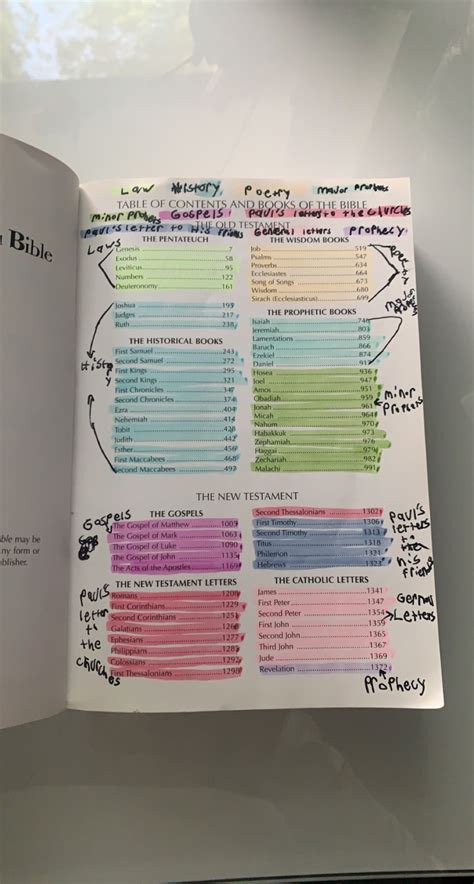 Bible
ble may be
ny form or
ublisher.
Law History Poetry major prophets
TABLE OF CONTENTS AND BOOKS OF THE BIBLE
minor Gospels Paul's letters to the churches
THE OLD TESTAMENT
Paul's letter to His friends General letters Prophecy
Laws
THE PENTATEUCH
Genesis 7
Exodus 58
Leviticus 95
Numbers 122
Deuteronomy 161
Joshua 195
Judges 217
Ruth 238
THE HISTORICAL BOOKS
First Samuel 243
Second Samuel 272
First Kings 295
Second Kings 321
First Chronicles 347
Second Chronicles 374
Ezra 404
Nehemiah 414
Tobit 428
Judith 442
Esther 456
First Maccabees 468
Second Maccabees 493
History
THE WISDOM BOOKS
Job 519
Psalms 547
Proverbs 634
Ecclesiastes 664
Song of Songs 673
Wisdom 680
Sirach (Ecclesiasticus) 699
Poetry
THE PROPHETIC BOOKS
Isaiah 746
Jeremiah 803
Lamentations 859
Baruch 866
Ezekiel 874
Daniel
Hosea 936
Joel 947
Amos 951
Obadiah 959
Jonah 961
Micah 964
Nahum 970
Habakkuk 973
Zephaniah 976
Haggai 979
Zechariah 982
Malachi 991
minor
prophets
THE NEW TESTAMENT
Gospels
THE GOSPELS
The Gospel of Matthew 1003
The Gospel of Mark 1063
The Gospel of Luke 1090
The Gospel of John 1135
The Acts of the Apostles 1169
THE NEW TESTAMENT LETTERS
Romans 1206
First Corinthians 1229
Second Corinthians 1251
Galatians 1266
Ephesians 1277
Philippians 1285
Colossians 1292
First Thessalonians 1298
Paul's
letter
to
the
churches
Second Thessalonians 1302
First Timothy 1306
Second Timothy 1313
Titus 1318
Philemon 1321
Hebrews 1323
Paul's
letters
to
his
friend
THE CATHOLIC LETTERS
James 1341
First Peter 1347
Second Peter 1354
First John 1359
Second John 1365
Third John 1367
Jude 1369
Revelation 1372
Letters
Prophecy